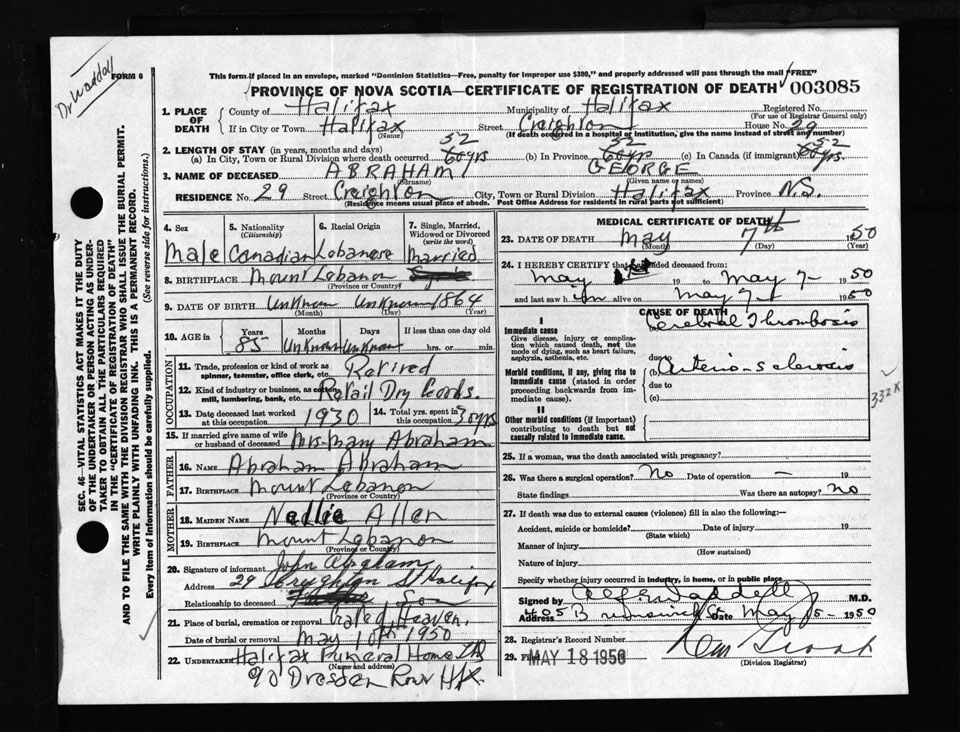 Dr Waddell
FORM 6
This form if placed in an envelope, marked "Dominion Statistics—Free, penalty for improper use $300," and properly addressed will pass through the mail "FREE"
PROVINCE OF NOVA SCOTIA—CERTIFICATE OF REGISTRATION OF DEATH 003085
1. PLACE OF DEATH
County of Halifax Municipality of Halifax Registered No.
(For use of Registrar General only)
If in City or Town Halifax Street Creighton House No. 29
(Name) (If death occurred in a hospital or institution, give the name instead of street and number)
2. LENGTH OF STAY (in years, months and days) 52 52 52
(a) In City, Town or Rural Division where death occurred 60 yrs (b) In Province 60 yr (c) In Canada (if immigrant) 60 yrs.
3. NAME OF DECEASED ABRAHAM GEORGE
(Surname) (Given name or names)
RESIDENCE No. 29 Street Creighton City, Town or Rural Division Halifax Province N.S.
(Residence means usual place of abode. Post Office Address for residents in rural parts not sufficient)
4. Sex 5. Nationality (Citizenship) 6. Racial Origin 7. Single, Married, Widowed or Divorced (write the word)
Male Canadian Lebanese Married
8. BIRTHPLACE Mount Lebanon
(Province or Country)
9. DATE OF BIRTH Unknown Unknown 1864
(Month) (Day) (Year)
10. AGE in Years Months Days If less than one day old
85 Unknown Unknown hrs. or min.
OCCUPATION
11. Trade, profession or kind of work as spinner, teamster, office clerk, etc. Retired
12. Kind of industry or business, as cotton mill, lumbering, bank, etc. Retail Dry Goods.
13. Date deceased last worked at this occupation 1930 14. Total yrs. spent in this occupation 30 yrs
15. If married give name of wife or husband of deceased Mrs. Mary Abraham
FATHER
16. NAME Abraham Abraham
17. BIRTHPLACE Mount Lebanon
(Province or Country)
MOTHER
18. MAIDEN NAME Nellie Allen
19. BIRTHPLACE Mount Lebanon
(Province or Country)
20. Signature of informant John Abraham
Address 29 Creighton St Halifax
Relationship to deceased Son
21. Place of burial, cremation or removal Gate of Heaven.
Date of burial or removal May 10th 1950
22. UNDERTAKER Halifax Funeral Home Ltd
(Name and address)
90 Dresden Row Hfx
MEDICAL CERTIFICATE OF DEATH
23. DATE OF DEATH May 7th 1950
(Month) (Day) (Year)
24. I HEREBY CERTIFY that I attended deceased from:
May 19 to May 7 1950
and last saw him alive on May 7 1950
CAUSE OF DEATH
I
Immediate cause (a) Cerebral Thrombosis
Give disease, injury or complication which caused death, not the mode of dying, such as heart failure, asphyxia, asthenia, etc.
due to
Morbid conditions, if any, giving rise to immediate cause (stated in order proceeding backwards from immediate cause). (b) Arterio-sclerosis
due to
(c)
332X
II
Other morbid conditions (if important) contributing to death but not causally related to immediate cause.
25. If a woman, was the death associated with pregnancy?
26. Was there a surgical operation? No Date of operation — 19
State findings Was there an autopsy? No
27. If death was due to external causes (violence) fill in also the following:—
Accident, suicide or homicide? Date of injury 19
(State which)
Manner of injury
(How sustained)
Nature of injury
Specify whether injury occurred in industry, in home, or in public place
Signed by Waddell M.D.
Address 405 Brunswick St. Date May 15 1950
28. Registrar's Record Number
29. MAY 18 1950
(Division Registrar)
SEC. 46—VITAL STATISTICS ACT MAKES IT THE DUTY
OF THE UNDERTAKER OR PERSON ACTING AS UNDER-
TAKER TO OBTAIN ALL THE PARTICULARS REQUIRED
IN THE "CERTIFICATE OF REGISTRATION OF DEATH"
AND TO FILE THE SAME WITH THE DIVISION REGISTRAR WHO SHALL ISSUE THE BURIAL PERMIT.
WRITE PLAINLY WITH UNFADING INK. THIS IS A PERMANENT RECORD.
Every item of information should be carefully supplied. (See reverse side for instructions.)